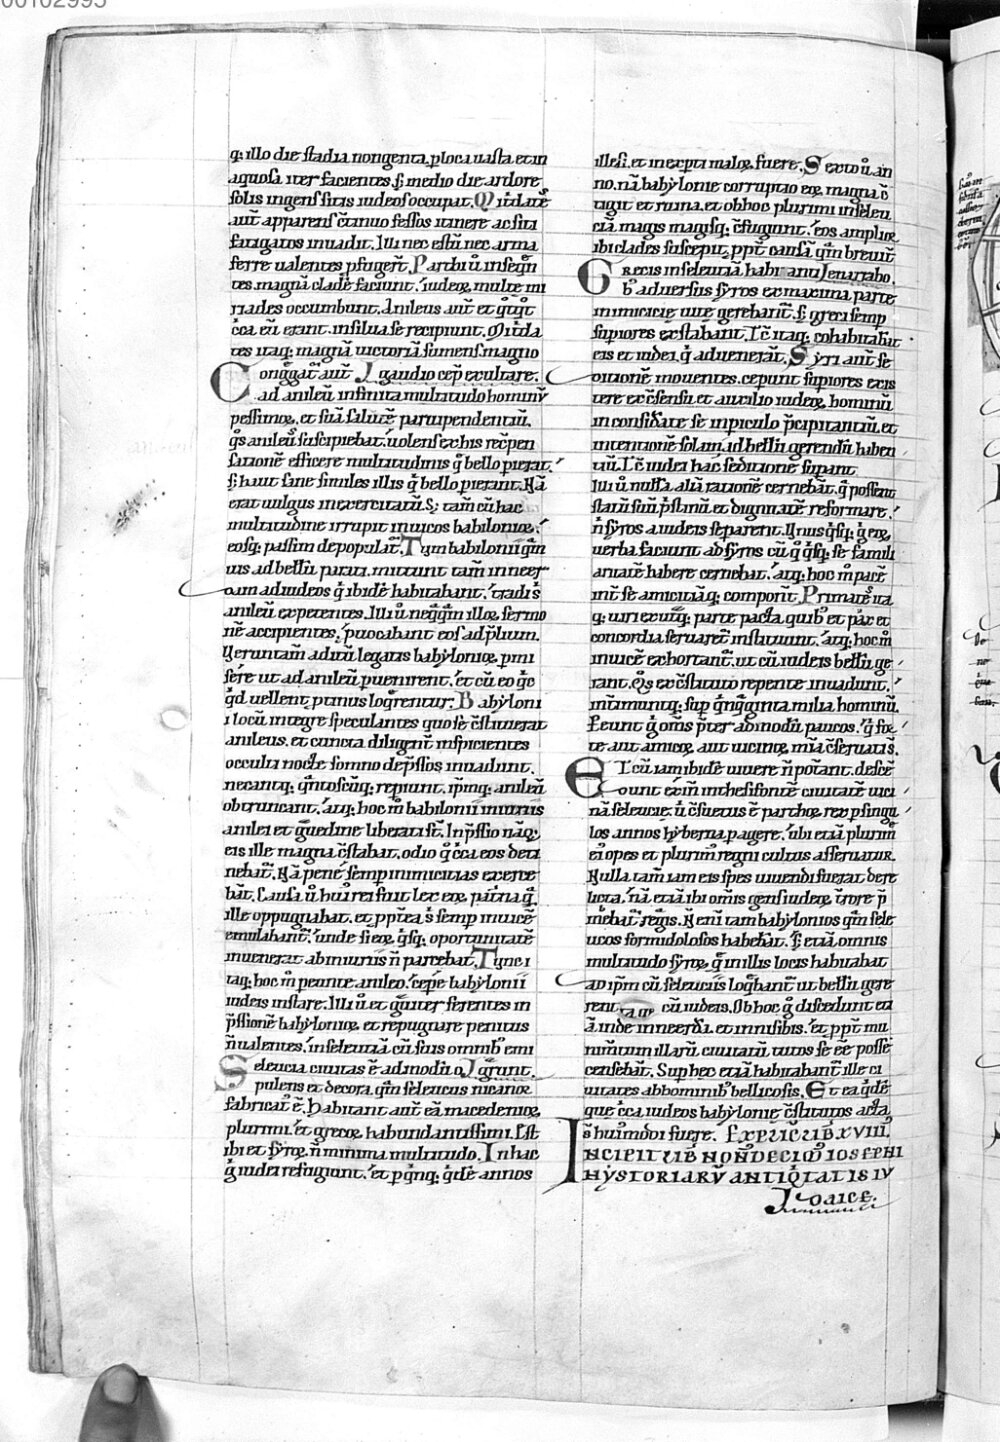 00102995
q; illo die stadia nongenta, ploca uasta et in
aquosa iter facientes. s; medio die ardore
solis ingens sitis iudeos occupat. Mitdate᷒
aut̄ apparens c̄tinuo fessos itinere ac siti
fatigatos inuadit. Illi nec estū nec arma
ferre ualentes pfugert̄. Parthi ū inseqn̄
tes. magnā cladē faciunt. iudeoꝝ multe mi
riades occumbunt. Anileus aut̄ et
c̄ca eū erant. insilua se recipiunt. Mitda
tes itaq; magnā uictoriā sumens. magno
Congg̃at᷒ aut̄ gaudio cep̄ exultare.
ad anileū infinita multitudo hominū
pessimoꝝ. et suā salutē paruipendentiū.
q̄s anileus suscipiebat. uolens ex his rec̄pen
sationē efficere multitudinis q̄ bello pierat.
s; haut sane similes illis q̄ bello pierant. Nā
erat uulgus inexercitatū. S; tam̄ cū hac
multitudine irrupit in uicos babilonioꝝ.
eosq; passim depopulat᷒. Tum babilonii q̄m̄
uis ad bellū parati. mittunt tam̄ in neer
dam ad iudeos q̄ ibidē habitabant. tradi s̄
anileū expetentes. Illi ū neq̄q̄m illoꝝ sermo
nē accipientes. puocabant eos ad p̄lium.
Veruntam̄ aditū legatis babylonioꝝ pmi
sere ut ad anileū puenirent. et cū eo q̄c
q̄d uellent prius loq̄rentur. Babyloni
i locū integre speculantes quo se c̄stituerat
anileus. et cuncta diligent̄ inspicientes
occulti nocte somno dep̄ssos inuadunt.
necantq; q̄ntoscūq; repiunt. ip̄mq; anileū
obtruncant. atq; hoc m̄ babilonii iniuriis
anilei et g̃uedine liberati st̄. In p̄ssio nāq;
eis ille magna c̄stabat. odio q̄ c̄ca eos deti
nebat᷒. Nā pene semp inimicitias exerce
bāt. Causa ū hui᷒ rei fuit lex eoꝝ patna q̄
ille oppugnabat. et ppt̄ea s̄ semp inuicē
emulabant᷒. unde sieꝝ q̄sq; oportunitatē
inuenerat ab iniuriis n̄ parcebat. Tunc i
taq; hoc m̄ peunte anileo. cepe babylonii
iudeis instare. Illi ū et g̃uiter ferentes in
p̄ssionē babylonioꝝ. et repugnare penitus
n̄ ualentes. in seleutiā cū suis omnib᷒ emi
Seleucia ciuitas ē admodū o grunt.
pulens et decora. q̄m seleucus nicanor
fabricat᷒ ē. Habitant aut̄ eā macedonioꝝ
plurimi. et grecoꝝ habundantissimi. Est
ibi et syroꝝ n̄ minima multitudo. In hac
q̄ iudei refugiunt. et p q̄nq; q̄dē annos
illesi. et inexpti maloꝝ. fuere. Sexto ū an
no. nā babylonie corruptio eoꝝ magna c̄
tigit et ruina. et ob hoc plurimi in seleu
ciā magis magisq; c̄fugiunt. eos amplior
ibi clades suscepit. ppt̄ causā q̄m breuit̄
Grecis in seleutiā habitantib᷒ enarrabo.
aduersus syros ex maxima parte
inimicicie uite gerebant᷒. s; greci semp
supiores exstabant. Ic̄ itaq; cohabitasst̄
eis et iudei. q̄ aduenerāt. Syri aut̄ se
ditionē mouentes. cepunt supiores exis
tere ex c̄sensu et auxilio iudeoꝝ. hominū
inconsidate se in piculo p̄cipitantiū. et
intentionē solam ad bellū gerendū haben
tiū. Ic̄ iudei hac seditione supant.
Illi ū nullā aliā rationē cernebāt. q̄ possent
statū suū p̄stinū et dignitatē reformare.
n̄ syros a iudeis separent. Vnusq̄sq; g̃ eoꝝ
uerba faciunt ad syros cū q̄ q̄sq; se famili
aritatē habere cernebat. atq; hoc m̄ pacē
int̄ se amicitiāq; componūt. Primates ita
q; uiri ex utraq; parte pacta quib᷒ et pax et
concordia seruaret᷒ instituunt. atq; hoc m̄
inuicē exhortant᷒. ut cū iudeis bellū ge
rant. Q̄s ex c̄stituto repente inuadunt.
int̄imuntq; sup q̄nq̄ginta milia hominū.
Peunt q̄ om̄s pt̄er admodū paucos. q̄ for
te aut amicoꝝ. aut uicinoꝝ mia c̄seruati s̄.
Et cū iam ibidē uiuere n̄ potant. desce
dunt ex in thesifontē ciuitatē uici
nā seleucie. ū c̄suetus ē parthoꝝ rex p singu
los annos hyberna pagere. ubi etiā plurim̄
ei᷒ opes et plurim᷒ regni cultus asseruatur.
Nulla tam̄ iam eis spes uiuendi fuerat dere
licta. nā etiā ibi om̄is gens iudeoꝝ t̄rore p̄
mebat᷒ regis. Nenī tam babylonios q̄m sele
ucos formidolosos habebāt. s; etiā omnis
multitudo syroꝝ q̄ in illis locis habitabat
ad ip̄m cū seleuciis loq̄bant᷒ ut bellū gere
rent cū iudeis. Ob hoc q̄ discedunt eti
ā inde in neerdā. et in nisibis. et ppt̄ mu
nimtum illarū ciuitatū tutos se eē posse
censebāt. Sup hec etiā habitabant᷒ ille ci
uitates ab hominib᷒ bellicosis. Et ea q̄dē
que c̄ca iudeos babylonie c̄stitutos acta
s̄ hui᷒modi fuere. EXPLICIT LIB XVIII.
INCIPIT LIB NONDECIM᷒ IOSEPHI
HYSTORIARV̄ ANTIQ̄TATIS IV
DAICE.